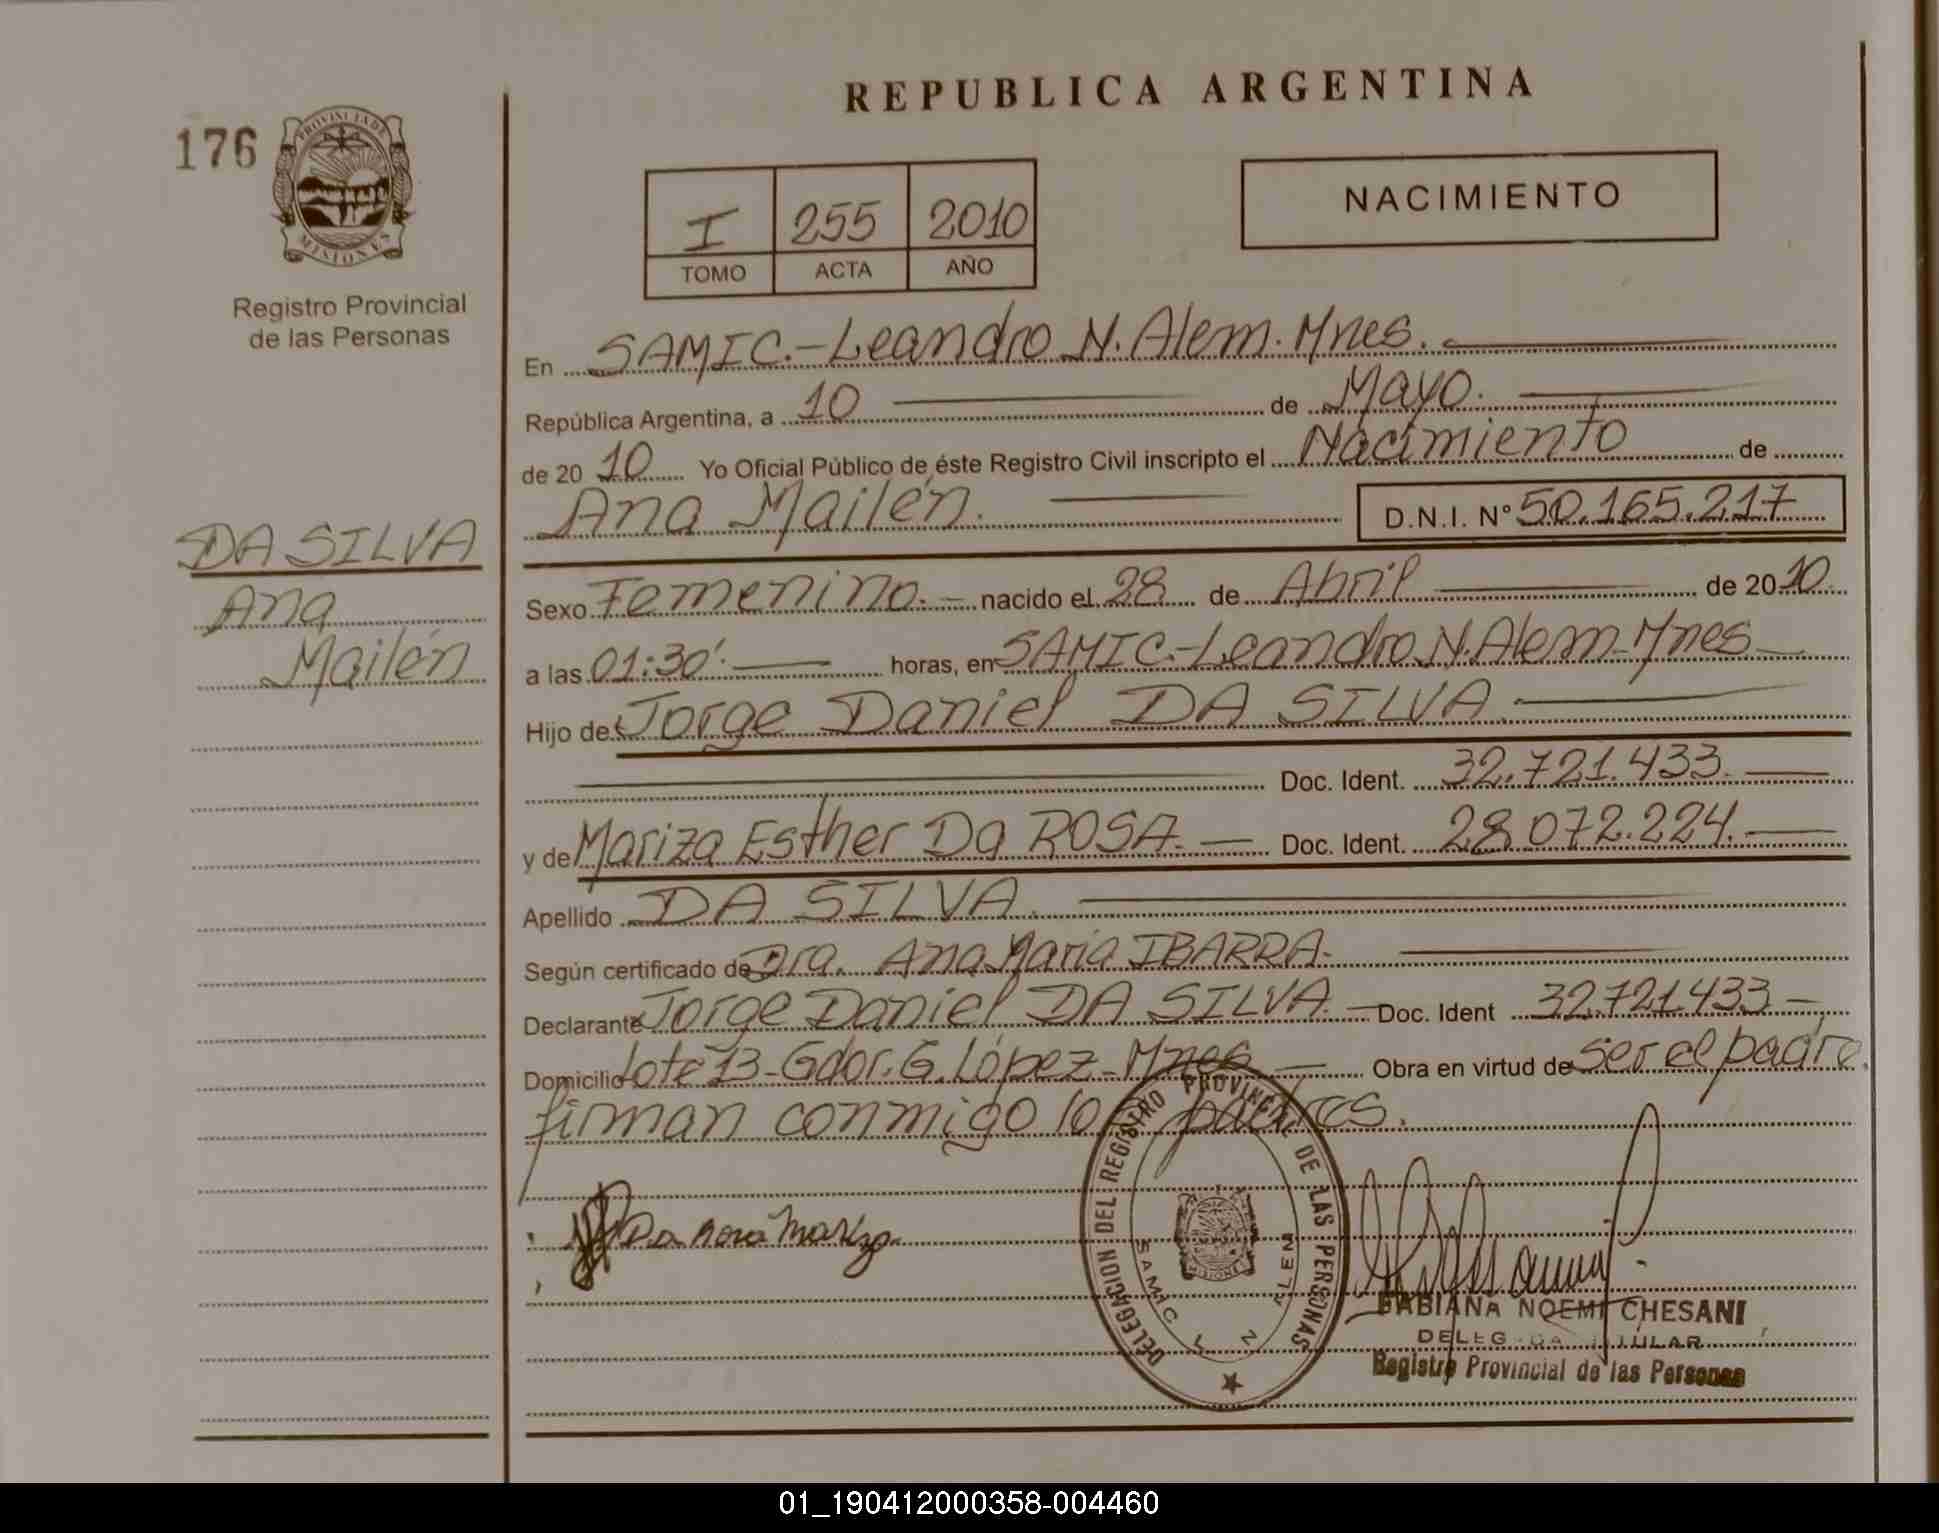 REPUBLICA ARGENTINA
176
PROVINCIA DE
MISIONES
Registro Provincial
de las Personas
I 255 2010
TOMO ACTA AÑO
NACIMIENTO
En SAMIC.-Leandro N. Alem. Mnes.
República Argentina, a 10 de Mayo.
de 20 10 Yo Oficial Público de éste Registro Civil inscripto el Nacimiento de
Ana Mailén. D.N.I. Nº 50.165.217
DA SILVA
Ana
Mailén
Sexo Femenino.- nacido el 28 de Abril de 20 10.
a las 01:30'. horas, en SAMIC.-Leandro N. Alem-Mnes
Hijo de Jorge Daniel DA SILVA.
Doc. Ident. 32.721.433.
y de Mariza Esther Da ROSA. Doc. Ident. 28.072.224.
Apellido DA SILVA.
Según certificado de Dra. Ana María IBARRA.
Declarante Jorge Daniel DA SILVA. Doc. Ident 32.721.433
Domicilio Lote 13-Gdor. G. López-Mnes Obra en virtud de ser el padre.
firman conmigo los padres.
Da Rosa Mariza
DELEGACION DEL REGISTRO PROVINCIAL DE LAS PERSONAS
SAMIC L N ALEM
MISIONES
FABIANA NOEMI CHESANI
DELEGADA TITULAR
Registro Provincial de las Personas
01_190412000358-004460